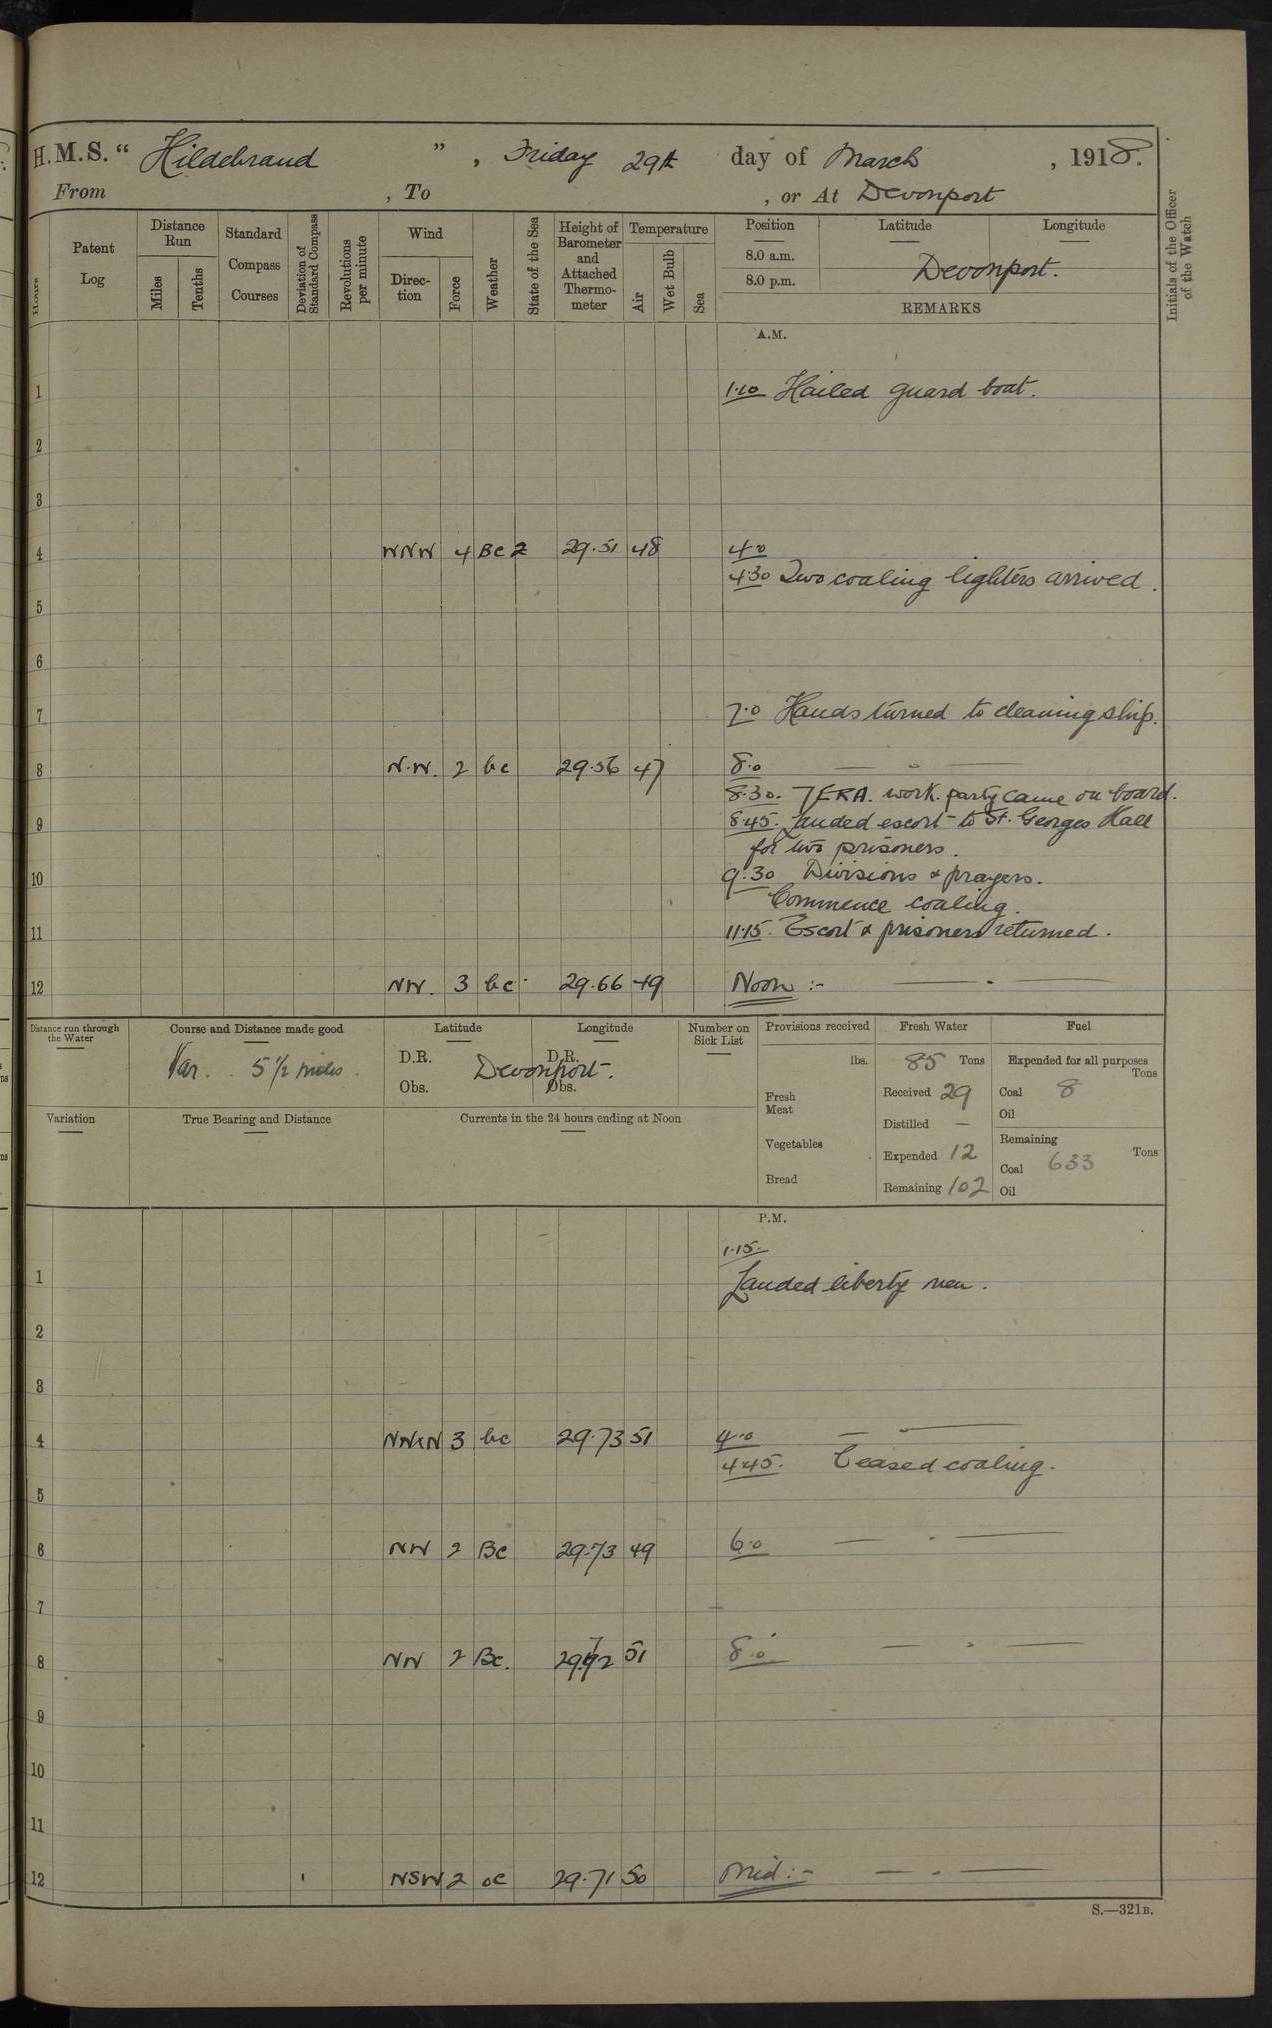 H.M.S. “ Hildebrand ” , Friday 29th day of March , 1918.
From , To , or At Devonport
Hours
Patent Log
Distance Run
Miles
Tenths
Standard Compass Courses
Deviation of Standard Compass
Revolutions per minute
Wind
Direc-tion
Force
Weather
State of the Sea
Height of Barometer and Attached Thermo-meter
Temperature
Air
Wet Bulb
Sea
Position
8.0 a.m.
8.0 p.m.
Latitude
Longitude
Devonport.
REMARKS
Initials of the Officer of the Watch
A.M.
1 1.10 Hailed guard boat.
2
3
4 WNW 4 BC 2 29.51 48 4.0
4.30 Two coaling lighters arrived.
5
6
7 7.0 Hands turned to cleaning ship.
8 N.W. 2 bc 29.56 47 8.0 — " —
8.30. 7 ERA. work. party came on board.
9 8.45. Landed escort to St. Georges Hall
for two prisoners.
10 9.30 Divisions & prayers.
Commence coaling.
11 11.15. Escort & prisoners returned.
12 NW. 3 bc 29.66 49 Noon :- — . —
Distance run through the Water
Course and Distance made good
Var. . 5 1/2 miles.
Latitude
D.R.
Obs.
Longitude
D.R.
Obs.
Devonport.
Number on Sick List
Provisions received
lbs.
Fresh Meat
Vegetables
Bread
Fresh Water
85 Tons
Received 29
Distilled —
Expended 12
Remaining 102
Fuel
Expended for all purposes
Tons
Coal 8
Oil
Remaining
Tons
Coal 633
Oil
Variation
True Bearing and Distance
Currents in the 24 hours ending at Noon
P.M.
1.15.
1 Landed liberty men.
2
3
4 3 bc 29.73 51 4.0 — " —
4.45. Ceased coaling.
5
6 NW 2 BC 29.73 49 6.0 — . —
7
8 NW 2 Bc. 29.72 51 8.0 — . —
9
10
11
12 2 oc 29.71 50 Mid :- — . —
S.—321B.